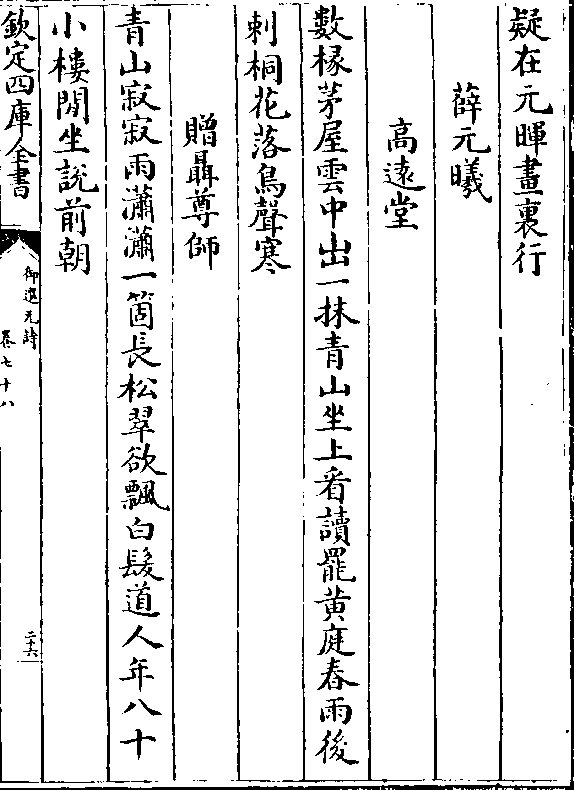 疑在元暉畫裏行
薛元曦
高遠堂
數椽茅屋雲中出一抹青山坐上看讀罷黄庭春雨後
刺桐花落鳥聲寒
贈聶尊師
青山寂寂雨瀟瀟一箇長松翠欲飄白髮道人年八十
小樓閒坐説前朝
欽定四庫全書
御選元詩
卷七十八
二十六